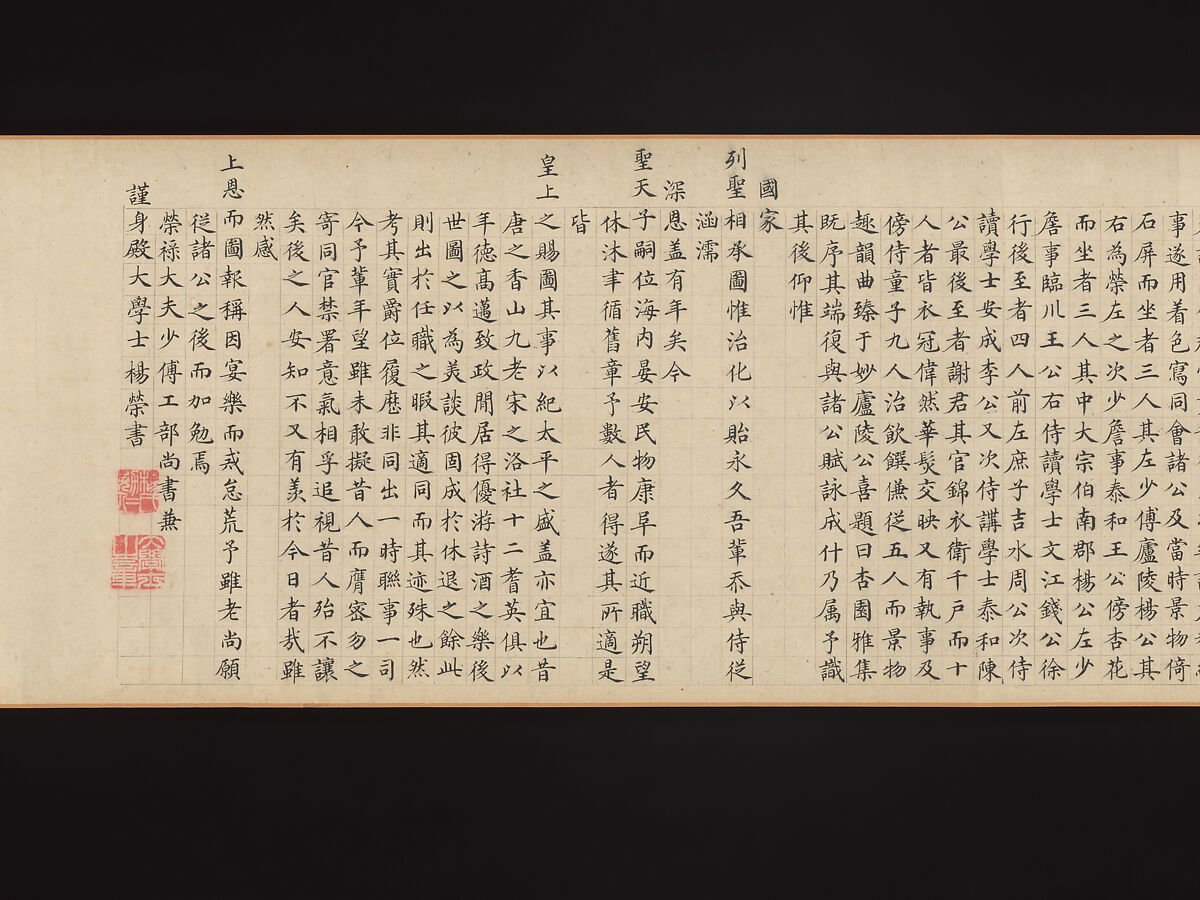 事遂用着色寫同會諸公及當時景物倚
石屏而坐者三人其左少傅廬陵楊公其
右為榮左之次少詹事泰和王公傍杏花
而坐者三人其中大宗伯南郡楊公左少
詹事臨川王公右侍讀學士文江錢公徐
行後至者四人前左庶子吉水周公次侍
讀學士安成李公又次侍講學士泰和陳
公最後至者謝君其官錦衣衛千戶而十
人者皆衣冠偉然華髮交映又有執事及
傍侍童子九人治飲饌傔從五人而景物
趣韻曲臻于妙廬陵公喜題曰杏園雅集
既序其端復與諸公賦詠成什乃属予識
其後仰惟
國家
列聖相承圖惟治化以貽永久吾輩忝與侍從
涵濡
深恩盖有年矣今
聖天子嗣位海内晏安民物康阜而近職朔望
休沐聿循舊章予數人者得遂其所適是
皆
皇上之賜圖其事以紀太平之盛盖亦宜也昔
唐之香山九老宋之洛社十二耆英俱以
年德高邁致政閒居得優游詩酒之樂後
世圖之以為美談彼固成於休退之餘此
則出於任職之暇其適同而其迹殊也然
考其實爵位履歷非同出一時聯事一司
今予輩年望雖未敢擬昔人而膺密勿之
寄同官禁署意氣相孚追視昔人殆不讓
矣後之人安知不又有羡於今日者哉雖
然感
上恩而圖報稱因宴樂而戒怠荒予雖老尚願
從諸公之後而加勉焉
榮祿大夫少傅工部尚書兼
謹身殿大學士楊榮書